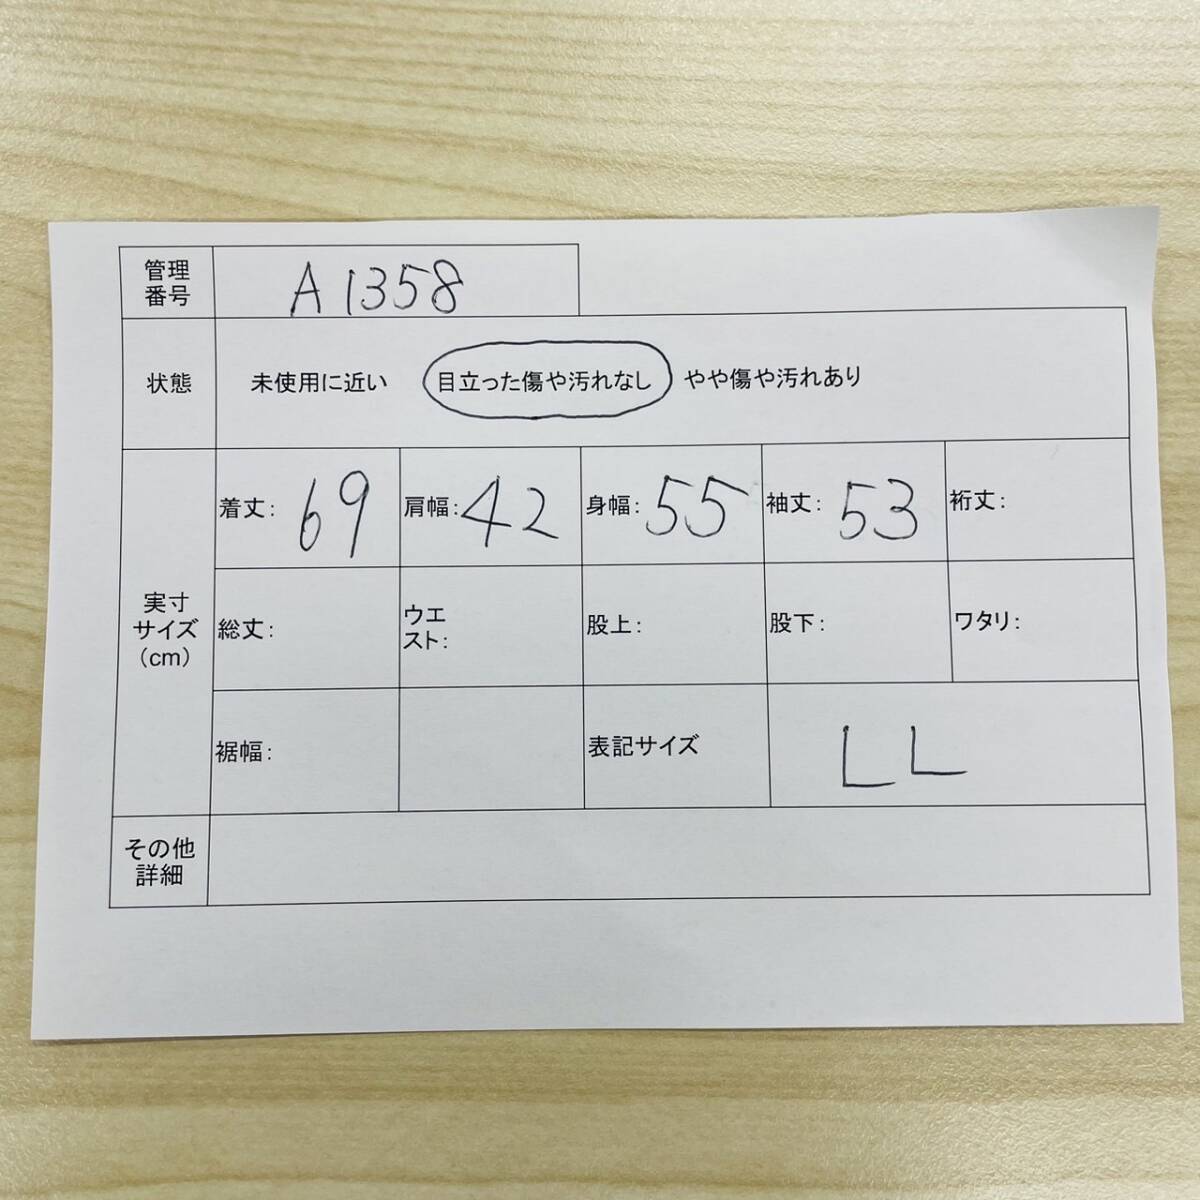 管理
番号
A1358
状態
未使用に近い 目立った傷や汚れなし やや傷や汚れあり
実寸
サイズ
(cm)
着丈: 69
肩幅: 42
身幅: 55
袖丈: 53
裄丈:
総丈:
ウエ
スト:
股上:
股下:
ワタリ:
裾幅:
表記サイズ
LL
その他
詳細